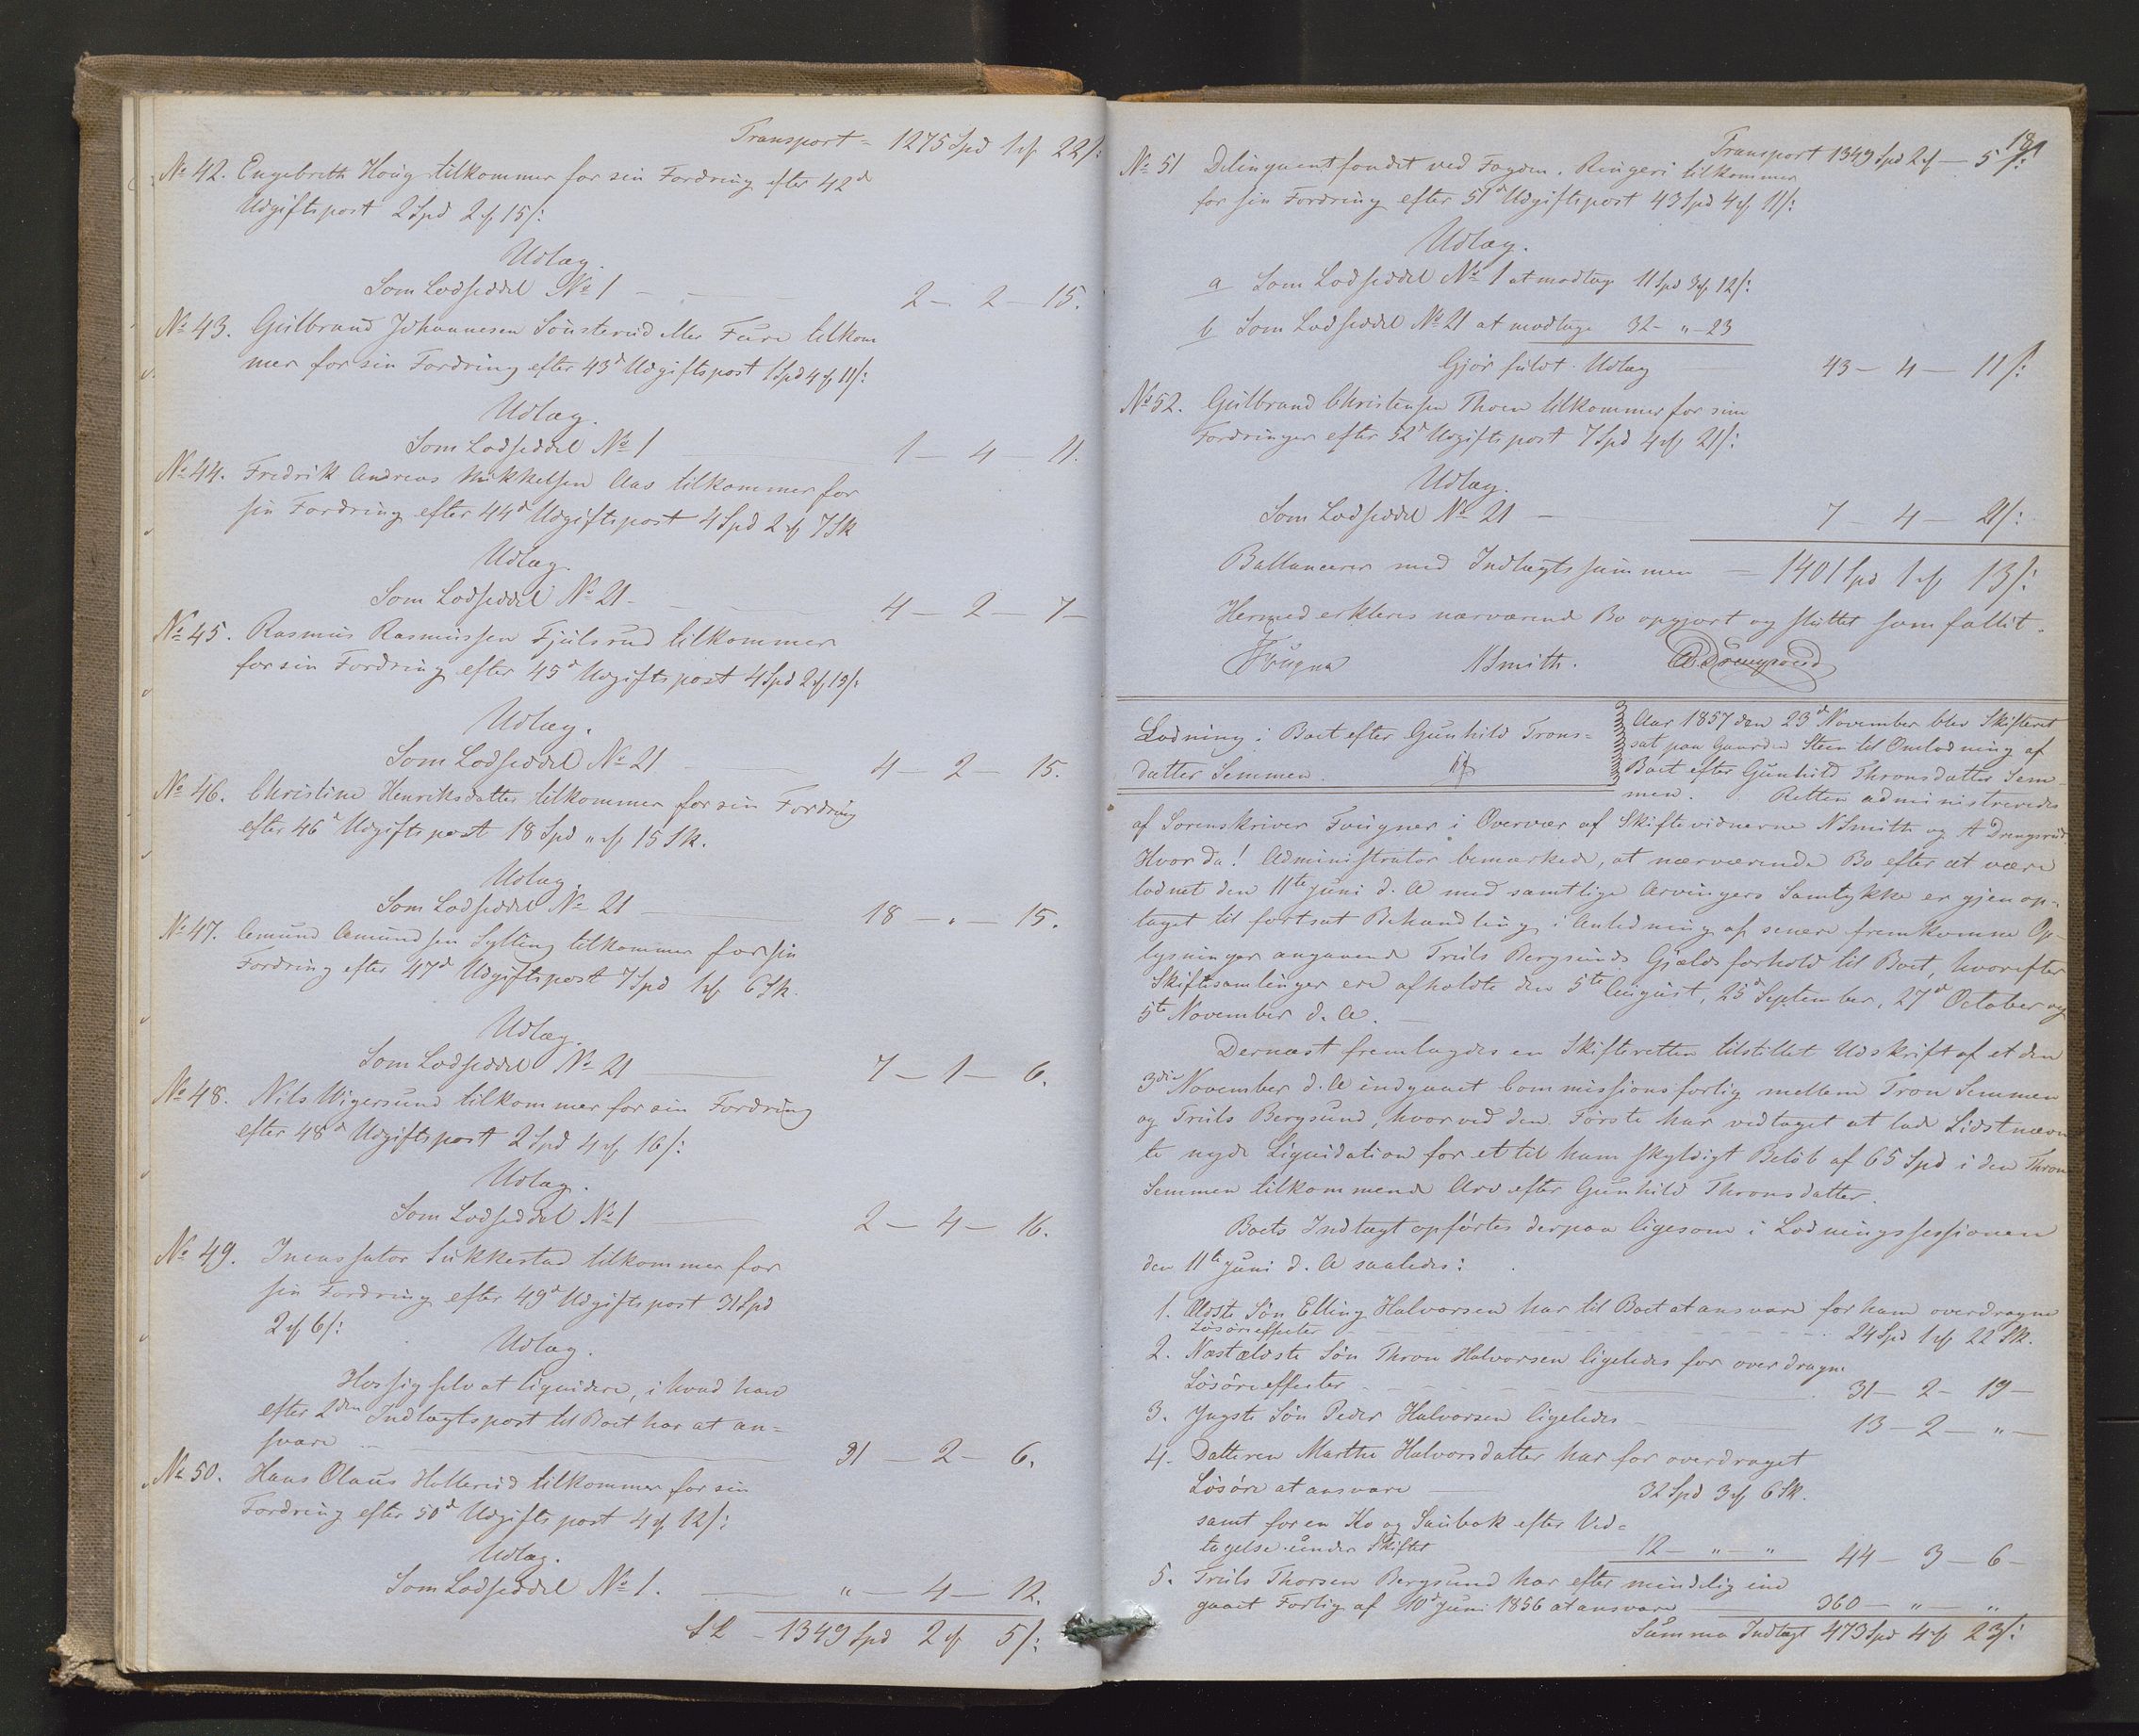 Transport = 1275 Spd 1 ℔ 22 ſ:
No 42. Engebreth Houg tilkommer for sin Fordring efter 42d
Udgiftspost 2 Spd 2 ℔ 15 ſ:
Udlæg.
Som Lodseddel No 1 — 2 — 2 — 15.
No 43. Gulbrand Johannesen Sønsterud eller Fure tilkom
mer for sin Fordring efter 43d Udgiftspost 1 Spd 4 ℔ 11 ſ:
Udlæg.
Som Lodseddel No 1 — 1 — 4 — 11.
No 44. Fredrik Andreas Mikkelsen Aas tilkommer for
sin Fordring efter 44d Udgiftspost 4 Spd 2 ℔ 7 Sk
Udlæg.
Som Lodseddel No 21 — 4 — 2 — 7 —
No 45. Rasmus Rasmussen Fjulsrud tilkommer
for sin Fordring efter 45d Udgiftspost 4 Spd 2 ℔ 15 ſ:
Udlæg.
Som Lodseddel No 21 — 4 — 2 — 15.
No 46. Christine Henriksdatter tilkommer for sin Fordring
efter 46d Udgiftspost 18 Spd „ ℔ 15 Sk.
Udlæg.
Som Lodseddel No 21 — 18 — „ — 15.
No 47. Amund Amundsen Sylling tilkommer for sin
Fordring efter 47d Udgiftspost 7 Spd 1 ℔ 6 Sk.
Udlæg.
Som Lodseddel No 21 — 7 — 1 — 6.
No 48. Nils Wigersund tilkommer for sin Fordring
efter 48d Udgiftspost 2 Spd 4 ℔ 16 ſ:
Udlæg.
Som Lodseddel No 1 — 2 — 4 — 16.
No 49. Incassator Sukkestad tilkommer for
sin Fordring efter 49d Udgiftspost 31 Spd
2 ℔ 6 ſ:
Udlæg.
Hos sig selv at liquidere, i hvad han
efter 2den Indtægtspost til Boet har at an=
svare — 31 — 2 — 6.
No 50. Hans Olaus Hollerud tilkommer for sin
Fordring efter 50d Udgiftspost 4 ℔ 12 ſ:
Udlæg.
Som Lodseddel No 1. — „ — 4 — 12.
S L — 1349 Spd 2 ℔ 5 ſ:
191
Transport 1349 Spd 2 ℔ — 5 ſ:
No 51 Delinquentfondet ved Fogden i Ringeri tilkommer
for sin Fordring efter 51d Udgiftspost 43 Spd 4 ℔ 11 ſ:
Udlæg.
a Som Lodseddel No 1 at modtage 11 Spd 3 ℔ 12 ſ:
b Som Lodseddel No 21 at modtage 32 — „ — 23
Gjør fuldt Udlæg — 43 — 4 — 11 ſ:
No 52. Gulbrand Christensen Thoen tilkommer for sine
Fordringer efter 52d Udgiftspost 7 Spd 4 ℔ 21 ſ:
Udlæg.
Som Lodseddel No 21 — 7 — 4 — 21 ſ:
Ballancerer med Indtægtssummen — 1401 Spd 1 ℔ 13 ſ:
Hermed erklæres nærværende Bo opgjort og sluttet som fallit.
Fougner NSmith. A Drengsrud
Lodning i Boet efter Gunhild Trons=
datter Semmen.
Aar 1857 den 23d November blev Skifteret
sat paa Gaarden Steen til Omlodning af
Boet efter Gunhild Thronsdatter Sem-
men. Retten administreredes
af Sorenskriver Fougner i Overvær af Skiftevidnerne NSmith og A Drengsrud
Hvor da! Administrator bemærkede, at nærværende Bo efter at være
lodnet den 11te Juni d. A med samtlige Arvingers Samtykke er gjenop-
taget til fortsat Behandling i Anledning af senere fremkomne Op-
lysninger angaaende Truls Bergsunds Gjældsforhold til Boet, hvorefter
Skiftesamlinger ere afholdte den 5te August, 25d September, 27d October og
5te November d. A. —
Dernæst fremlagdes en Skifteretten tilstillet Udskrift af et den
3die November d. A indgaaet Commissionsforlig mellem Tron Semmen
og Truls Bergsund, hvorved den Første har vedtaget at lade Sidstnævn
te nyde Liquidation for et til ham skyldigt Beløb af 65 Spd i den Thron
Semmen tilkommende Arv efter Gunhild Thronsdatter.
Boets Indtægt opførtes derpaa ligesom i Lodningssessionen
den 11te Juni d. A saaledes:
1. Ældste Søn Elling Halvorsen har til Boet at ansvare for ham overdragne
Løsøreeffecter — 24 Spd 1 ℔ 22 Sk.
2. Næstældste Søn Thron Halvorsen ligeledes for overdragne
Løsøreeffecter — 31 — 2 — 19 —
3. Yngste Søn Peder Halvorsen ligeledes — 13 — 2 — „ —
4. Datteren Marthe Halvorsdatter har for overdraget
Løsøre at ansvare — 32 Spd 3 ℔ 6 Sk.
samt for en Ko og Saubak efter Ved=
tagelse under Skiftet 12 — „ — „ 44 — 3 — 6 —
5. Truls Thorsen Bergsund har efter mindelig ind
gaaet Forlig af 10d Juni 1856 at ansvare — 360 — „ — „
Summa Indtægt 473 Spd 4 ℔ 23 ſ: